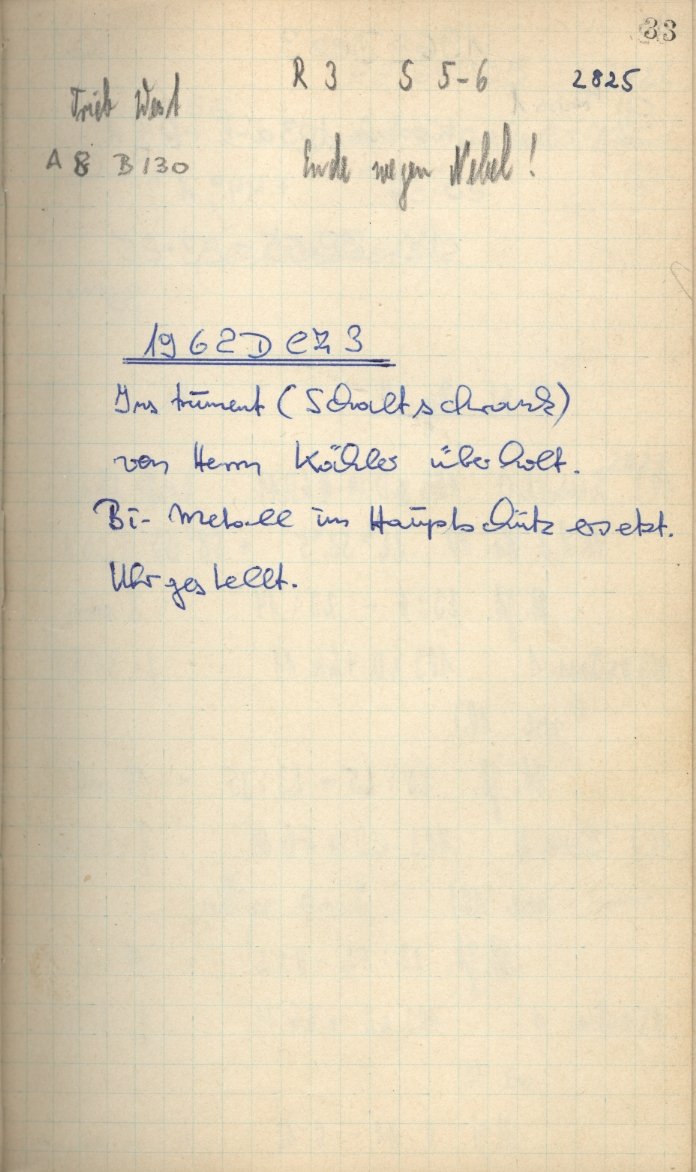 33
R 3 S 5-6 2825
Trieb West
A 8 B 130 Ende wegen Nebel!
1962 DEZ 3
Instrument (Schaltschrank)
von Herrn Köhler überholt.
Bi-Metall im Hauptschütz ersetzt.
Uhr gestellt.